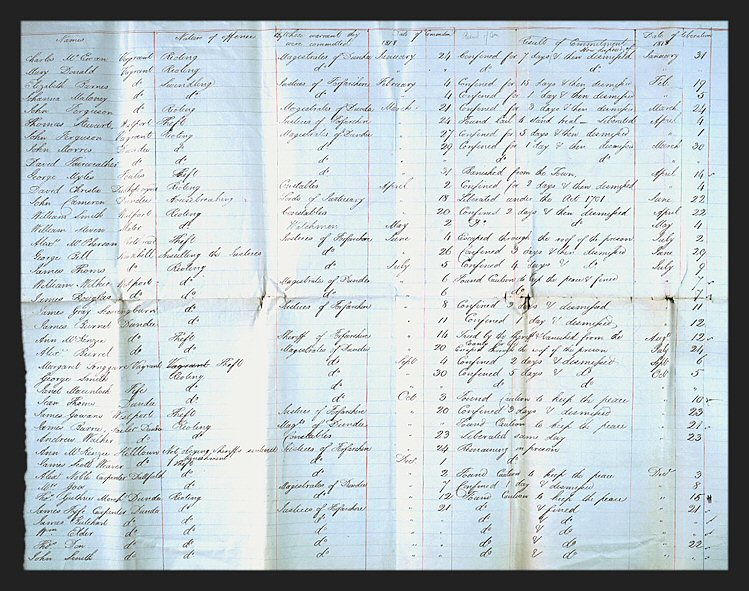 Names Nature of offence By whose warrant they were committed Date of Commitmt 1818 Result of Commitment Date of Liberation 1818
Charles McEwan Vagrant Rioting Magistrates of Dundee January 24 Confined for 7 days & then dismissed January 31
Mary Donald Vagrant Rioting do " 24 do do
Elizabeth Barnes do Swindling Justices of Forfarshire February 4 Confined for 15 days & then dismissed Feb 19
Maloney do do 4 Confined for 1 day & then dismissed " 5
John Ferguson do Rioting Magistrates of Dundee March 21 Confined for 3 days & then dismissed March 24
Thomas Stewart Theft Justices of Forfarshire 24 Found Bail to stand trial Liberated April 4
John Ferguson Vagrant Rioting Magistrates of Dundee 27 Confined for 5 days & then dismissed " 1
John Morris Dundee do do 29 Confined for 1 day & then dismiss March 30
David Fairweather do do do " do do
George Myles Theft do 31 Banished from the Town April 14
David Christie Rioting Constables April 2 Confined for 2 days & then dismissed " 4
John Cameron Dundee Housebreaking Lords of Justiciary 18 Liberated under the Act 1701 June 22
William Smith Westport Rioting Constables 20 Confined 2 days & then dismissed April 22
William do Watchmen May 2 do do May 4
Alexr McPherson Theft Justices of Forfarshire June 4 Escaped through the roof of the prison July 2
George Bell Insulting the Justices do 26 Confined 3 days & then dismissed June 29
James Thoms do Rioting do July 5 Confined 4 days & do July 9
William Wilkie Westport do Magistrates of Dundee 6 Found Caution to keep the peace & fined " 7
James Douglas do do do do
James Gray do Justices of Forfarshire 8 Confined 3 days & dismissed 11
James Birrel Dundee do do 11 Confined 1 day & dismissed 12
Ann McKenzie do Theft Sheriff of Forfarshire 14 Tried by the Sheriff & banished from the County Augt 12
Alexr Birrel do do Magistrates of Dundee 20 Escaped through the roof of the prison July 24
Margaret Vagrant Vagrant Theft do Sept 4 Confined 2 days & dismissed
George Smith Rioting do 30 Confined 5 days & do Oct 5
Janet Macintosh Fife do do
Jean Thoms Dundee do do Oct 3 Found Caution to keep the peace 10
James Gowans Westport Theft Justices of Forfarshire 20 Confined 3 days & dismissed 23
James Barnes Dundee Rioting Magts of Dundee " Found Caution to keep the peace 21
Andrew Walker do do Constables 23 Liberated same day 23
Ann McKenzie Hilltown Not obeying Sheriffs sentence of banishment Justices of Forfarshire 24 Remaining in prison
James Scott Weaver do Theft do Decr do
Alexr Noble Carpenter do do 2 Found Caution to keep the peace Decr 3
do do Magistrates of Dundee 7 Confined 1 day & dismissed 8
Thos Guthrie Dundee Rioting do 12 Found Caution to keep the peace 16
James Fyfe Carpenter Dundee do Justices of Forfarshire 21 do & fined 21
James do do do do & do
Wm Elder do do do do & do
Thos Don do do do do & do 22
John Smith do do do do & do